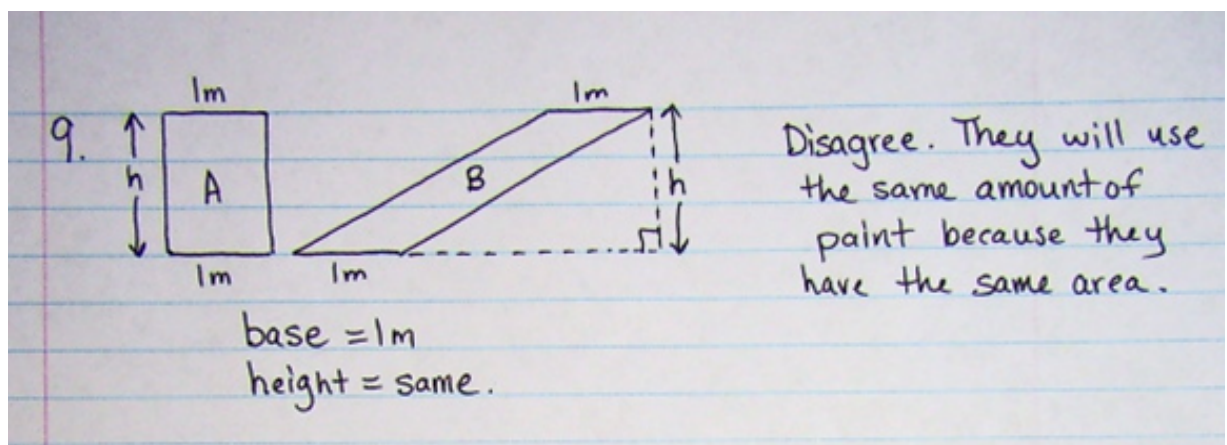 1m
1m
9.
h
A
B
h
1m
1m
Disagree. They will use
the same amount of
paint because they
have the same area.
base = 1m
height = same.